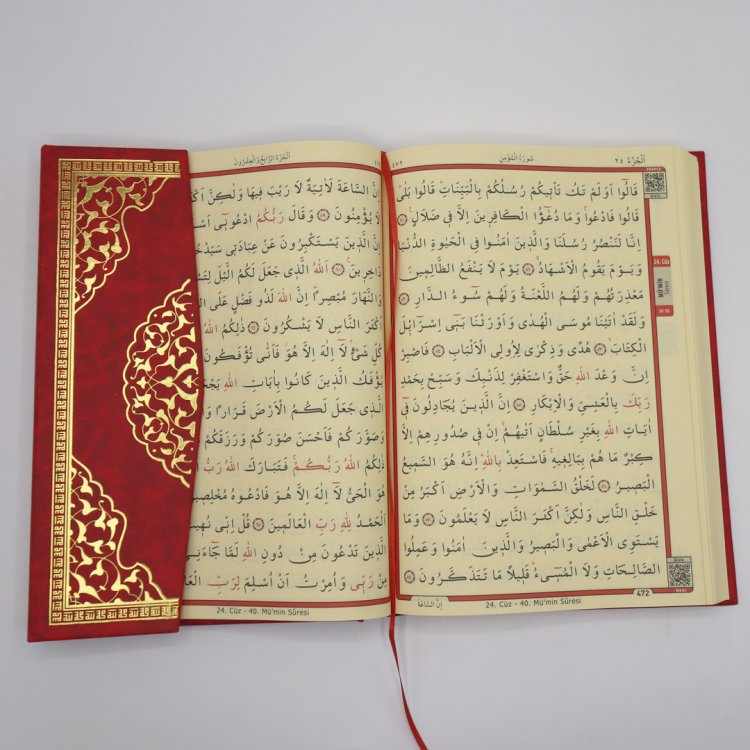 سُورَةُ الْمُؤْمِنِ
اَلْجُزْءُ ٢٤
قَالُٓوا اَوَلَمْ تَكُ تَأْت۪يكُمْ رُسُلُكُمْ بِالْبَيِّنَاتِۜ قَالُوا بَلٰىۜ
قَالُوا فَادْعُواۚ وَمَا دُعٰٓؤُا الْكَافِر۪ينَ اِلَّا ف۪ي ضَلَالٍ۟
اِنَّا لَنَنْصُرُ رُسُلَنَا وَالَّذ۪ينَ اٰمَنُوا فِي الْحَيٰوةِ الدُّنْيَا
وَيَوْمَ يَقُومُ الْاَشْهَادُۙ يَوْمَ لَا يَنْفَعُ الظَّالِم۪ينَ
مَعْذِرَتُهُمْ وَلَهُمُ اللَّعْنَةُ وَلَهُمْ سُٓوءُ الدَّارِ
وَلَقَدْ اٰتَيْنَا مُوسَى الْهُدٰى وَاَوْرَثْنَا بَن۪ٓي اِسْرَٓائ۪لَ
الْكِتَابَۙ هُدًى وَذِكْرٰى لِاُو۬لِي الْاَلْبَابِ فَاصْبِرْ
اِنَّ وَعْدَ اللّٰهِ حَقٌّ وَاسْتَغْفِرْ لِذَنْبِكَ وَسَبِّحْ بِحَمْدِ
رَبِّكَ بِالْعَشِيِّ وَالْاِبْكَارِ اِنَّ الَّذ۪ينَ يُجَادِلُونَ ف۪ٓي
اٰيَاتِ اللّٰهِ بِغَيْرِ سُلْطَانٍ اَتٰيهُمْۙ اِنْ ف۪ي صُدُورِهِمْ اِلَّا
كِبْرٌ مَا هُمْ بِبَالِغ۪يهِۚ فَاسْتَعِذْ بِاللّٰهِۜ اِنَّهُ هُوَ السَّم۪يعُ
الْبَص۪يرُ لَخَلْقُ السَّمٰوَاتِ وَالْاَرْضِ اَكْبَرُ مِنْ
خَلْقِ النَّاسِ وَلٰكِنَّ اَكْثَرَ النَّاسِ لَا يَعْلَمُونَ وَمَا
يَسْتَوِي الْاَعْمٰى وَالْبَص۪يرُ وَالَّذ۪ينَ اٰمَنُوا وَعَمِلُوا
الصَّالِحَاتِ وَلَا الْمُس۪ٓيءُۜ قَل۪يلًا مَا تَتَذَكَّرُونَ
24. Cüz
MÜ'MİN
Sûresi
50-58
472
24. Cüz - 40. Mü'min Sûresi
اِنَّ السَّاعَةَ
اَلْجُزْءُ الرَّابِعُ وَالْعِشْرُونَ
اِنَّ السَّاعَةَ لَاٰتِيَةٌ لَا رَيْبَ ف۪يهَا وَلٰكِنَّ
لَا يُؤْمِنُونَ وَقَالَ رَبُّكُمُ ادْعُون۪ٓي
اِنَّ الَّذ۪ينَ يَسْتَكْبِرُونَ عَنْ عِبَادَت۪ي
دَاخِر۪ينَ۟ اَللّٰهُ الَّذ۪ي جَعَلَ لَكُمُ الَّيْلَ
وَالنَّهَارَ مُبْصِرًاۜ اِنَّ اللّٰهَ لَذُو فَضْلٍ عَلَى
اَكْثَرَ النَّاسِ لَا يَشْكُرُونَ ذٰلِكُمُ اللّٰهُ
كُلِّ شَيْءٍۢ لَٓا اِلٰهَ اِلَّا هُوَۘ فَاَنّٰى تُؤْفَكُونَ
يُؤْفَكُ الَّذ۪ينَ كَانُوا بِاٰيَاتِ اللّٰهِ
الَّذ۪ي جَعَلَ لَكُمُ الْاَرْضَ قَرَارًا
وَصَوَّرَكُمْ فَاَحْسَنَ صُوَرَكُمْ وَرَزَقَكُمْ
ذٰلِكُمُ اللّٰهُ رَبُّكُمْۚ فَتَبَارَكَ اللّٰهُ رَبُّ
هُوَ الْحَيُّ لَٓا اِلٰهَ اِلَّا هُوَ فَادْعُوهُ
اَلْحَمْدُ لِلّٰهِ رَبِّ الْعَالَم۪ينَ قُلْ اِنّ۪ي نُه۪يتُ
الَّذ۪ينَ تَدْعُونَ مِنْ دُونِ اللّٰهِ لَمَّا
مِنْ رَبّ۪ي وَاُمِرْتُ اَنْ اُسْلِمَ لِرَبِّ
24. Cüz - 40. Mü'min Sûresi